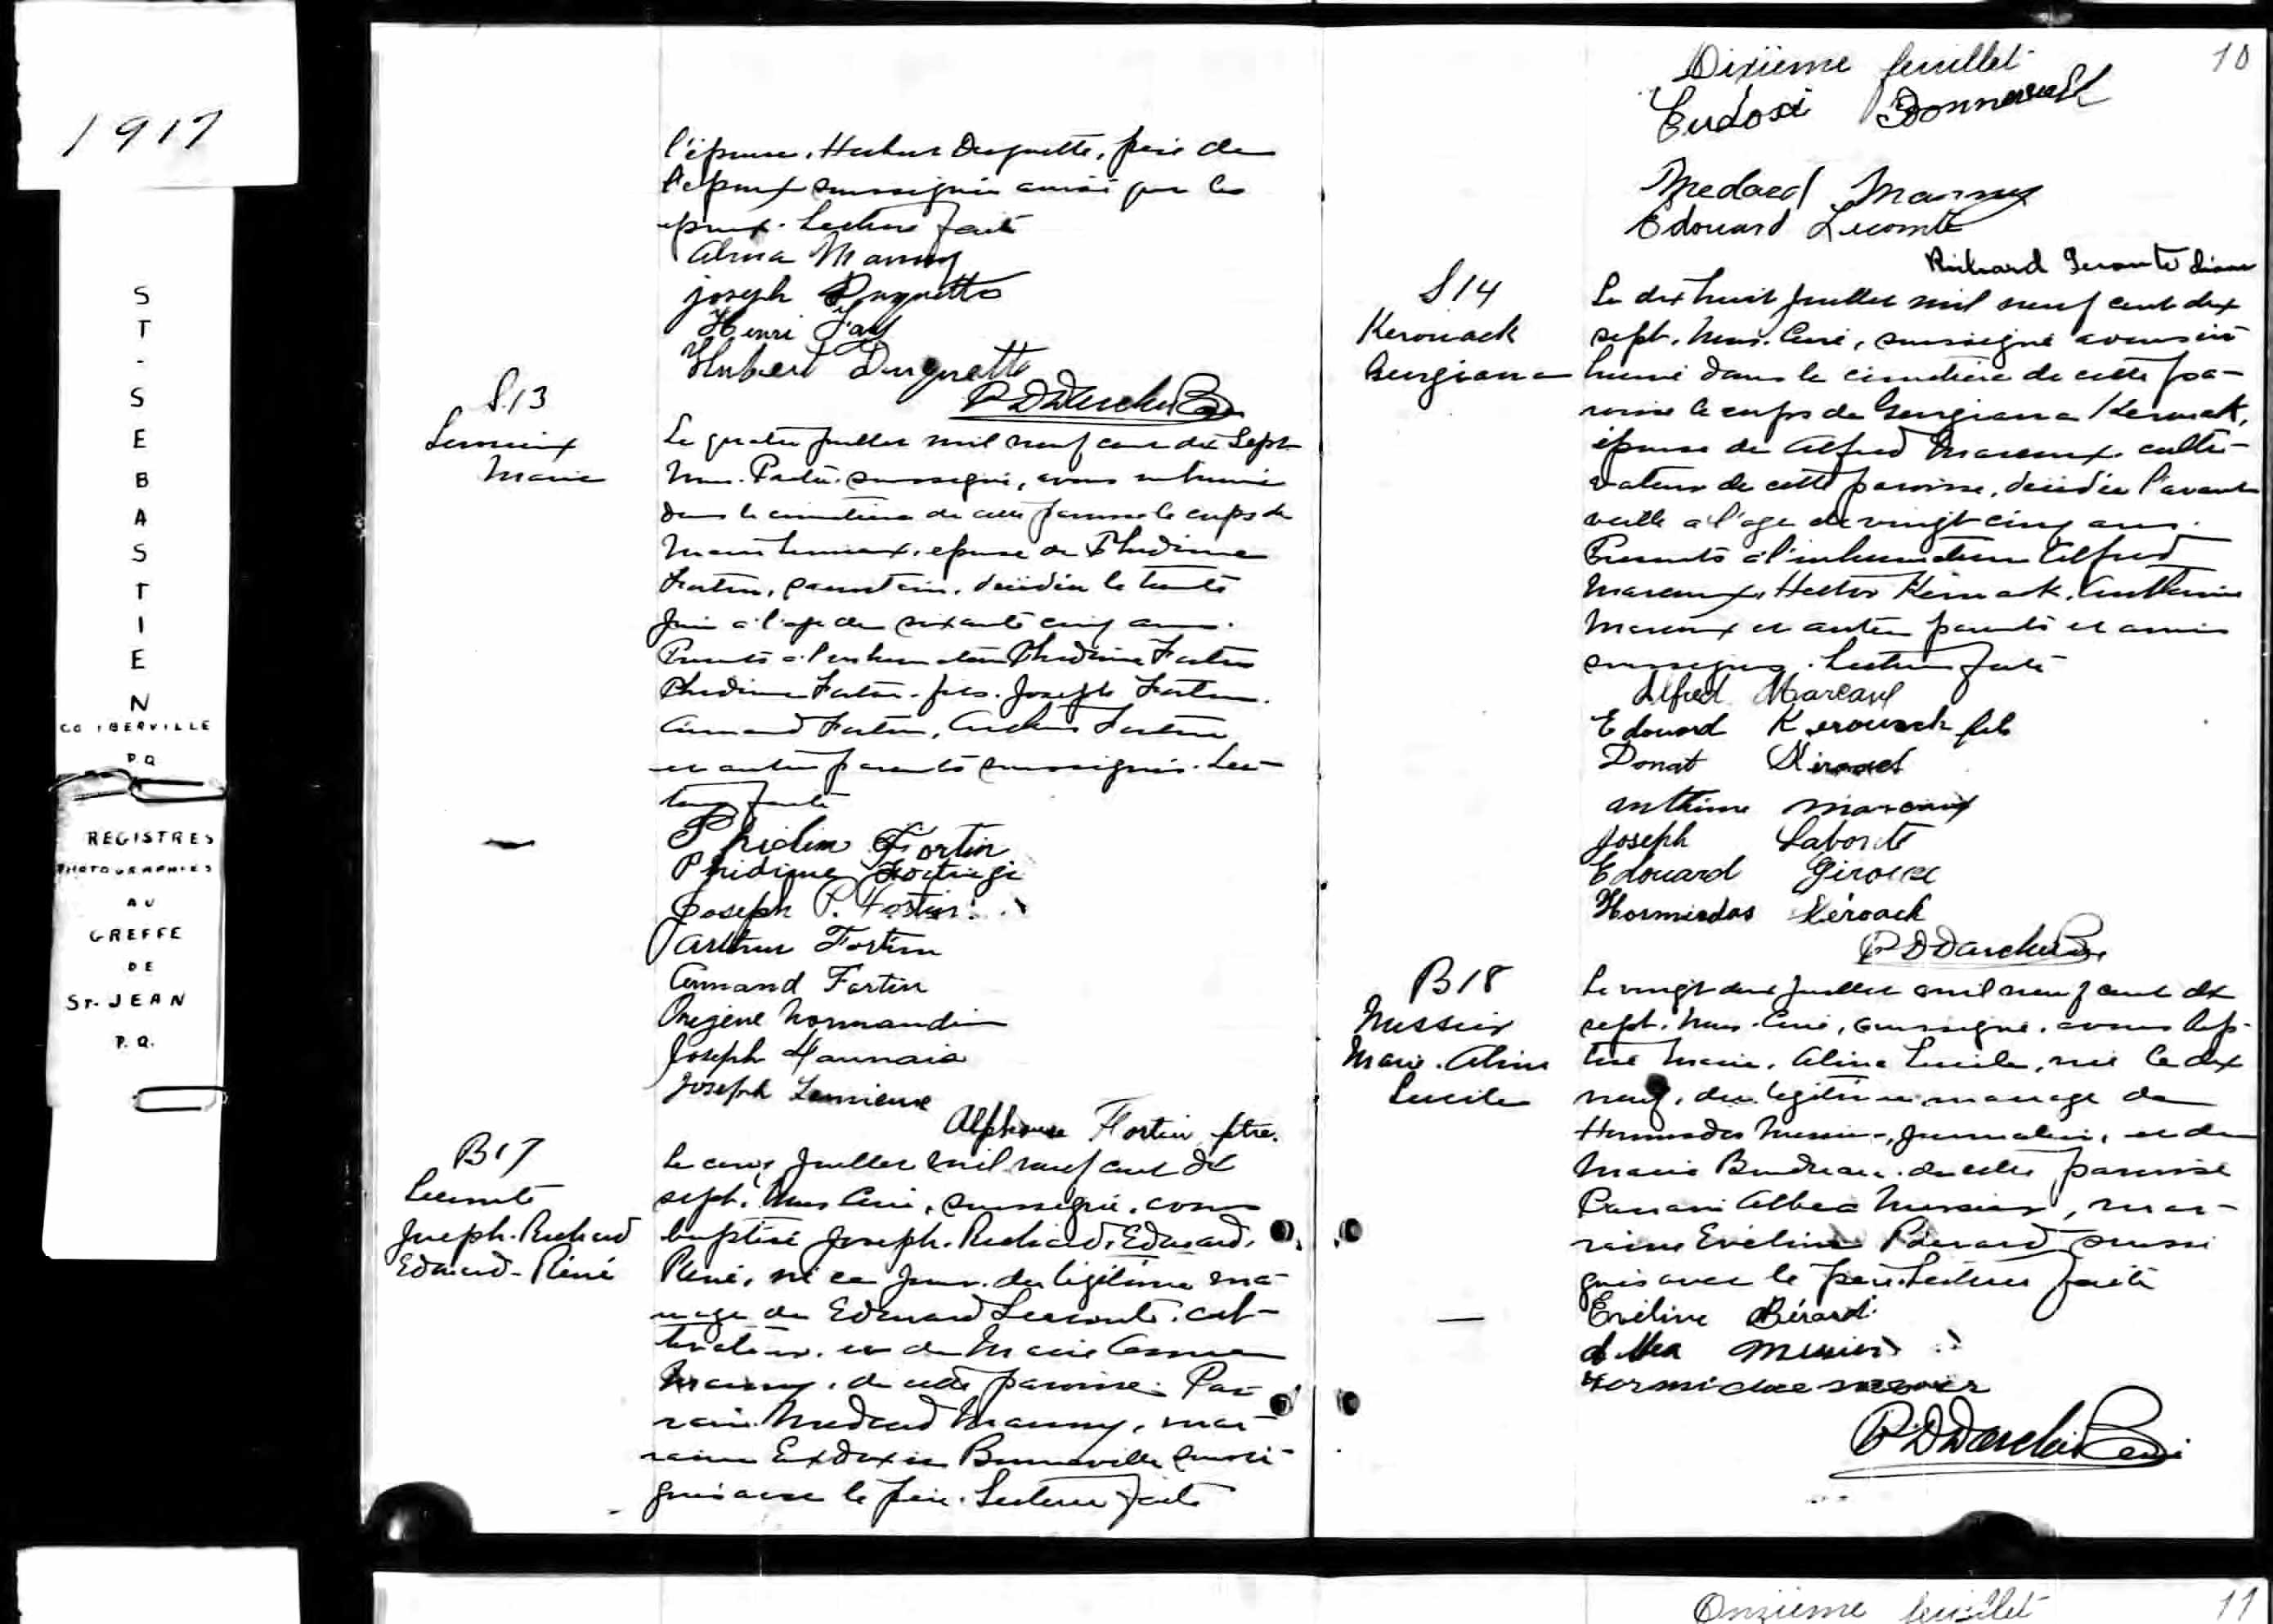 1917
ST-SEBASTIEN
CO IBERVILLE
P Q
REGISTRES
PHOTOGRAPHIES
AU
GREFFE
DE
ST-JEAN
P.Q.
l'épouse, Hubert Duquette, père de
l'époux soussignés ainsi que les
époux. Lecture faite
Alma
joseph Duquette
Henri
Hubert Duquette
S.13
Lemieux
Marie
Le quatre juillet mil neuf cent dix sept
Nous. soussigné, avons inhumé
dans le cimetière de cette paroisse le corps de
Marie Lemieux, épouse de Phidime
Fortin, décédée le trente
juin à l'age de soixante cinq ans.
Présents à l'inhumation Phidime Fortin
Phidime Fortin fils. Joseph Fortin.
Armand Fortin, Arthur Fortin
et autres parents soussignés. Lec-
ture faite
Phidim Fortin
Phidime Fortin
Joseph P. Fortin
Arthur Fortin
Armand Fortin
Origène Normandin
Joseph
Joseph Lemieux
Alphonse Fortin ptre.
B17
Lecomte
Joseph-Richard
Edouard-Réné
Le juillet mil neuf cent dix
sept, Nous Curé, soussigné, avons
baptisé Joseph. Richard, Edouard,
Réné, né ce jour, du légitime ma-
riage de Edouard Lecomte, cul-
tivateur, et de Marie
de cette paroisse. Par-
rain Médard mar-
raine Bonneville soussi-
gnés avec le père. Lecture faite
Dixième feuillet 10
Eudoxi
Medard
Edouard Lecomte
Richard Lecomte
S14
Kerouack
Georgiana
Le dix huit juillet mil neuf cent dix
sept. Nous. Curé, soussigné avons in-
humé dans le cimetière de cette pa-
roisse le corps de Georgiana Kerouack,
épouse de Alfred Marcoux, culti-
vateur de cette paroisse, décédée l'avant
veille à l'age de vingt cinq ans.
Présents à l'inhumation Alfred
Marcoux, Hector Anthime
Marcoux et autres parents et amis
soussignés. Lecture faite
Alfred
Edouard Kerouack fils
Donat
anthime marcoux
Joseph Laborte
Edouard Giroux
Hormisdas Kéroack
B18
Messier
Marie. Aline
Lucile
Le vingt deux juillet mil neuf cent dix
sept. Nous. Curé, soussigné, avons bap-
tisé Marie, Aline Lucile, née le dix
neuf, du légitime mariage de
Hormisdas Messier, journalier, et de
Marie de cette paroisse
Parrain Messier, mar-
raine Eveline Bérard soussi
gnés avec le père. Lecture faite
Eveline Bérard
Messier
Onzième feuillet 11